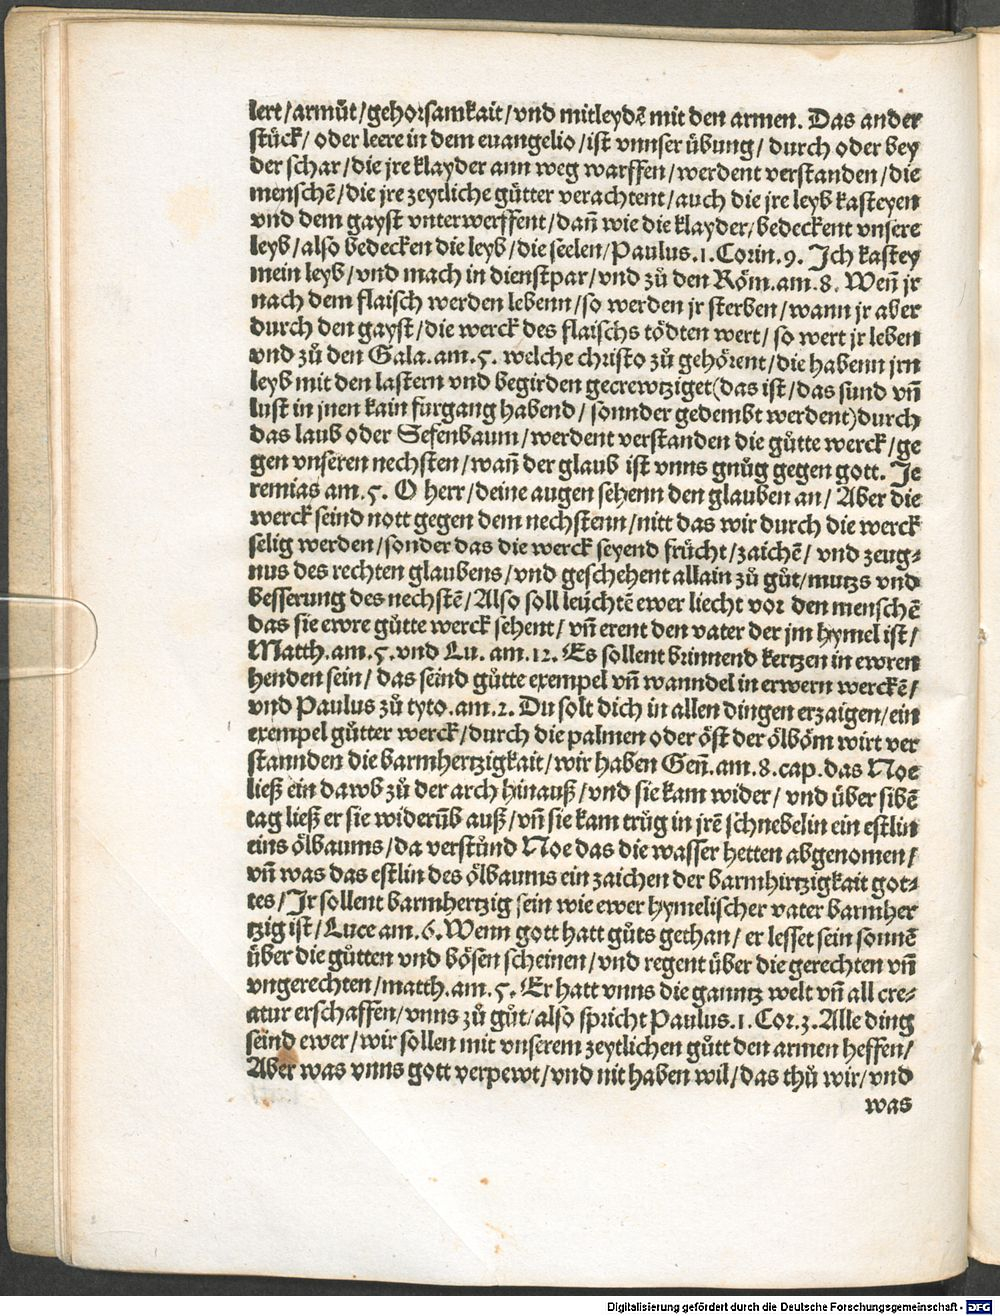 lert/armůt/gehorsamkait/vnd mitleydē mit den armen. Das ander
stück/ oder leere in dem euangelio/ist vnnser übung/ durch oder bey
der schar/die jre klayder ann weg warffen/werdent verstanden/die
menschē/die jre zeytliche gůtter verachtent/auch die jre leyb kasteyen
vnd dem gayst vnterwerffent/dañ wie die klayder/bedeckent vnsere
leyb/also bedecken die leyb/die seelen/Paulus.1.Corin.9. Jch kastey
mein leyb/vnd mach in dienstpar/vnd zů den Röm.am.8. Weñ jr
nach dem flaisch werden lebenn/so werden jr sterben/wann jr aber
durch den gayst/die werck des flaischs tödten wert/so wert jr leben
vnd zů den Gala.am.5. welche christo zů gehörent/die habenn jrn
leyb mit den lastern vnd begirden gecrewtziget(das ist/das sund vñ
lust in jnen kain furgang habend/sonnder gedembt werdent)durch
das laub oder Sefenbaum/werdent verstanden die gůtte werck/ge
gen vnseren nechsten/wañ der glaub ist vnns gnůg gegen gott. Je
remias am.5. O herr/deine augen sehenn den glauben an/Aber die
werck seind nott gegen dem nechstenn/nitt das wir durch die werck
selig werden/sonder das die werck seyend frücht/zaichē/vnd zeug⸗
nus des rechten glaubens/vnd geschehent allain zů gůt/nutzs vnd
besserung des nechstē/Also soll leüchtē ewer liecht vor den menschē
das sie ewre gůtte werck sehent/vñ erent den vater der jm hymel ist/
Matth.am.5.vnd Lu.am.12. Es sollent brinnend kertzen in ewren
henden sein/das seind gůtte exempel vñ wanndel in erwern werckē/
vnd Paulus zů tyto.am.2. Du solt dich in allen dingen erzaigen/ein
exempel gůtter werck/durch die palmen oder öst der ölböm wirt ver
stannden die barmhertzigkait/wir haben Geñ.am.8.cap.das Noe
ließ ein dawb zů der arch hinauß/vnd sie kam wider/vnd über sibē
tag ließ er sie widerūb auß/vñ sie kam trůg in jrē schnebelin ein estlin
eins ölbaums/da verstůnd Noe das die wasser hetten abgenomen/
vñ was das estlin des ölbaums ein zaichen der barmhirtzigkait got⸗
tes/Jr sollent barmhertzig sein wie ewer hymelischer vater barmher
tzig ist/Luce am.6.Wenn gott hatt gůts gethan/er lesset sein sonnē
über die gůtten vnd bösen scheinen/vnd regent über die gerechten vñ
vngerechten/matth.am.5. Er hatt vnns die ganntz welt vñ all cre⸗
atur erschaffen/vnns zů gůt/also spricht Paulus.1.Cor.3.Alle ding
seind ewer/wir sollen mit vnserem zeytlichen gůtt den armen heffen/
Aber was vnns gott verpewt/vnd nit haben wil/das thů wir/vnd
was
Digitalisierung gefördert durch die Deutsche Forschungsgemeinschaft - DFG